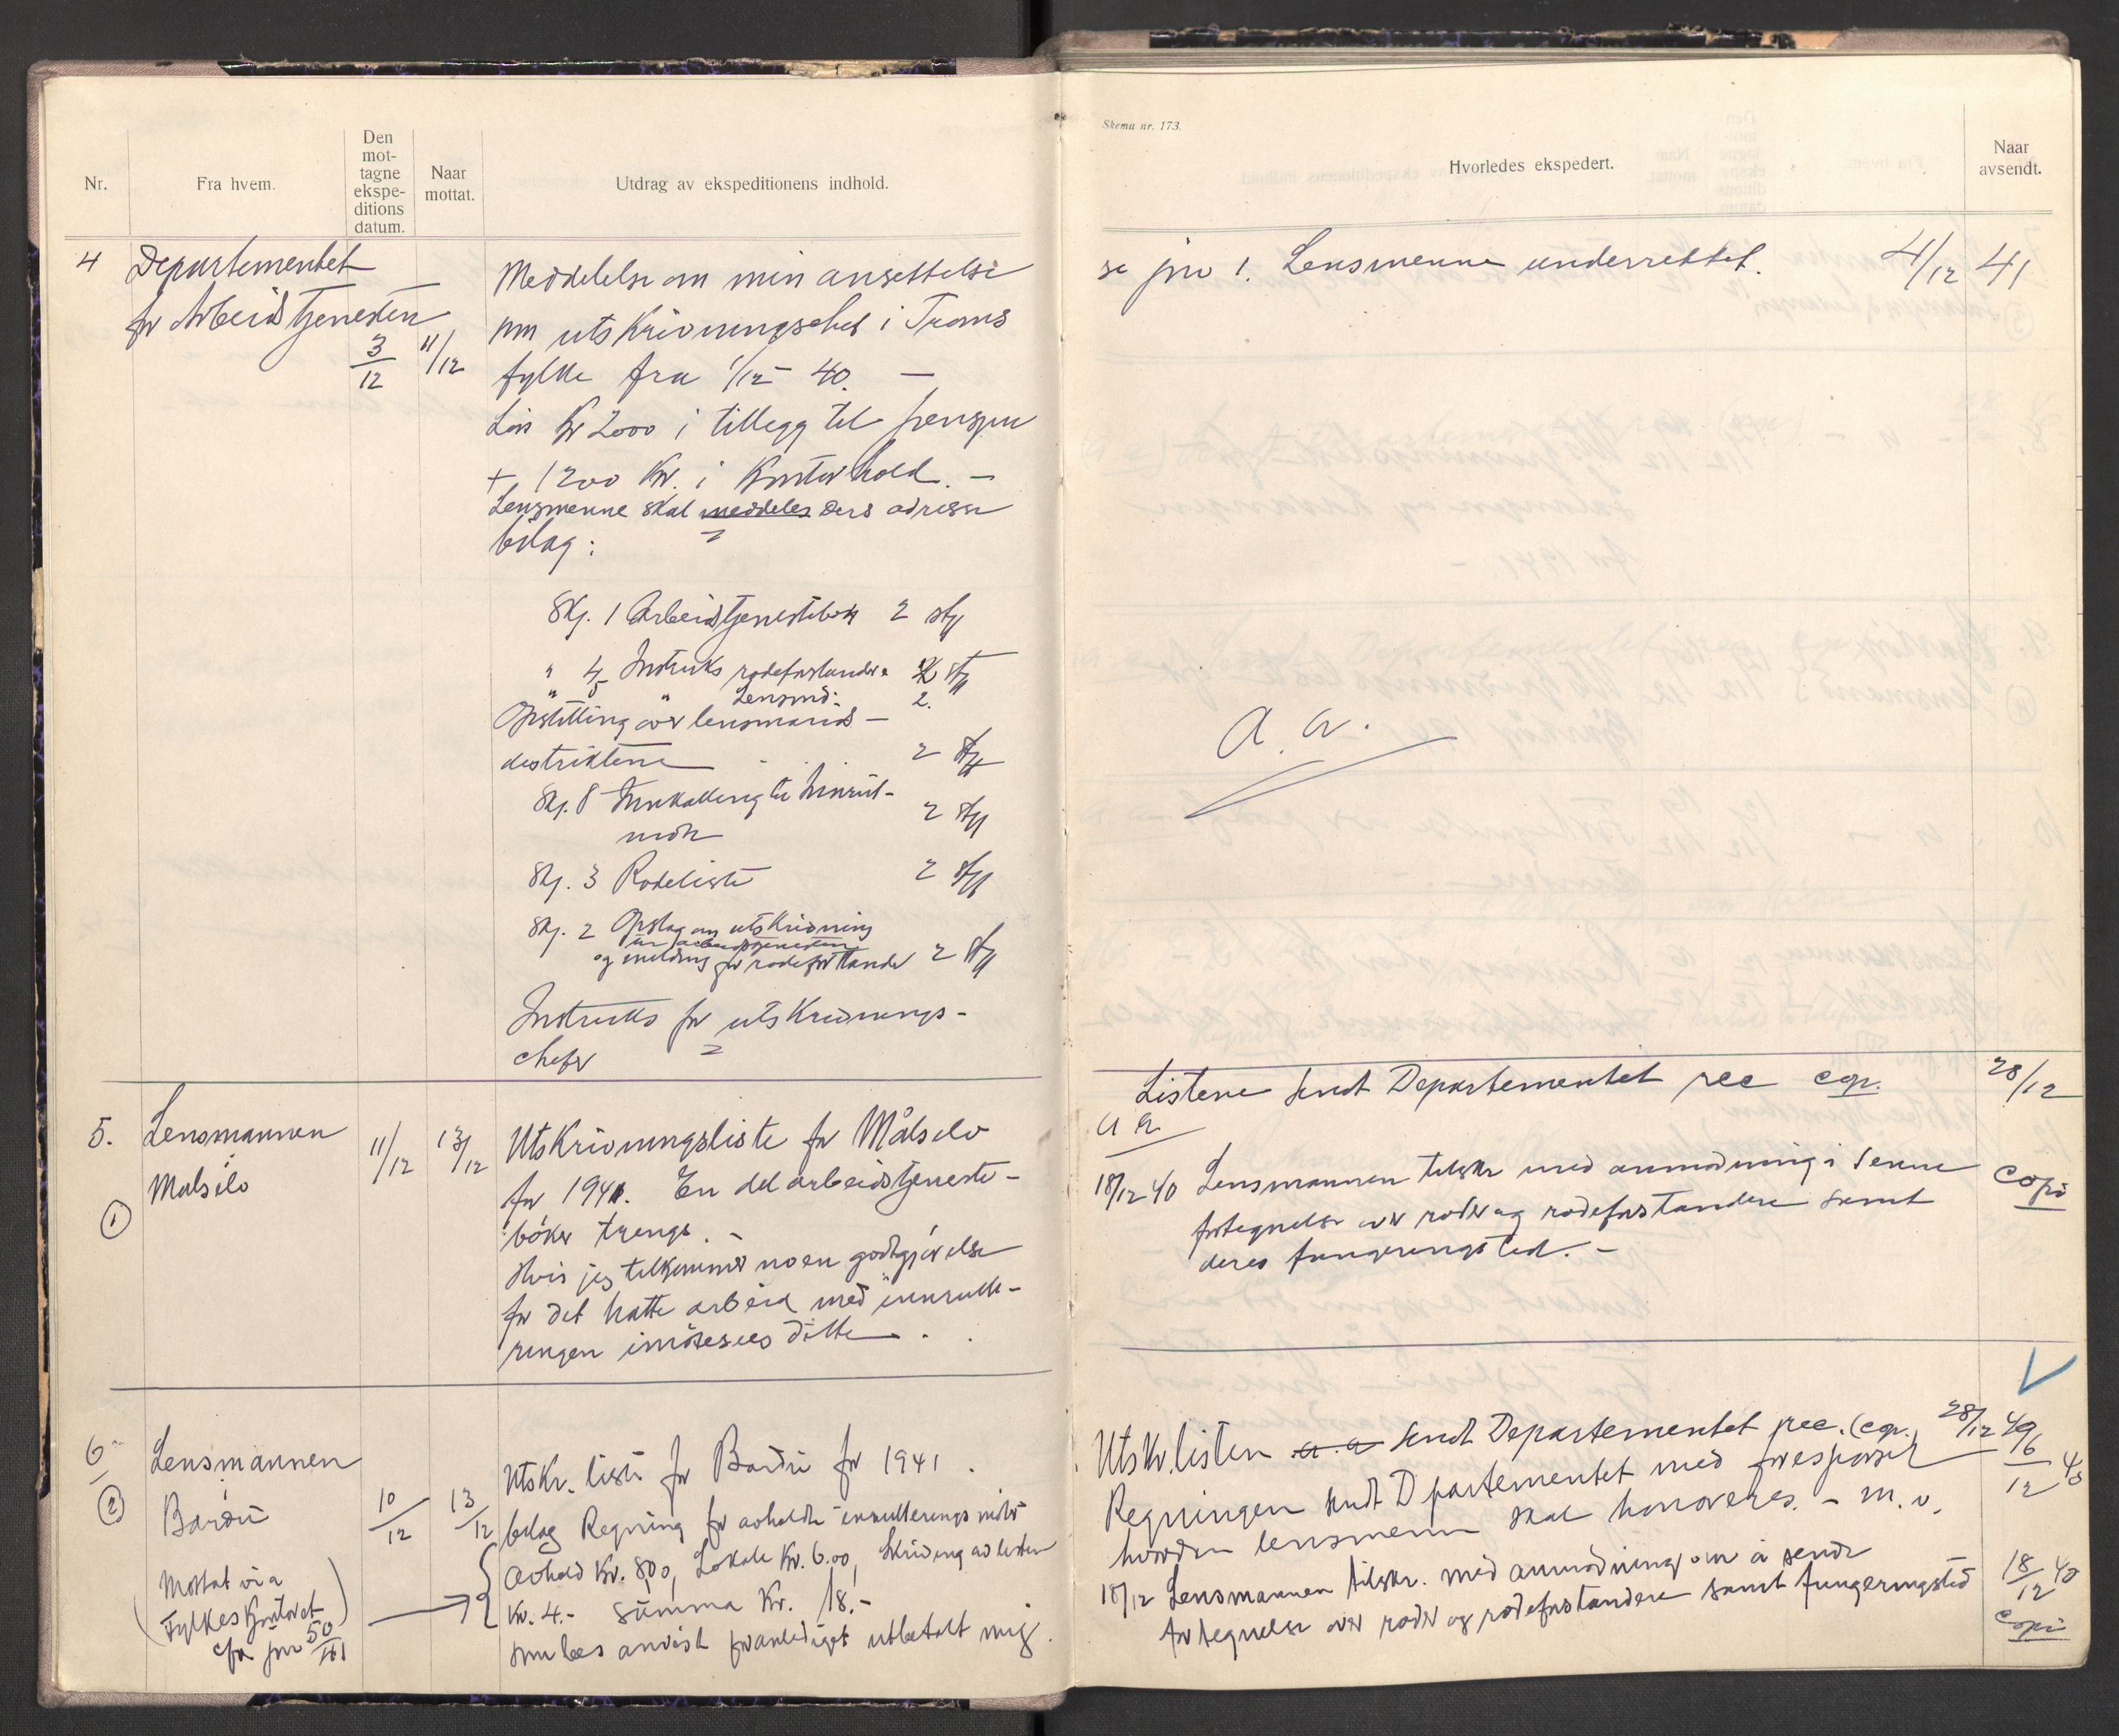 Nr.
Fra hvem.
Den
mot-
tagne
ekspe-
ditions
datum.
Naar
mottat.
Utdrag av ekspeditionens indhold.
4 Departementet
for Arbeidstjenesten
3/12 11/12
Meddelelse om min ansettelse
som utskrivningschef i Troms
fylke fra 1/12 - 40. —
Lön Kr 2000 i tillegg til pensjon
+ 1200 Kr. i Kontorhold. —
Lensmenne skal meddeles ders adresse
bilag:
Skj. 1 Arbeidstjenestebok 2 stk
" 4 Instruks rodeforstander 2 stk
" 5 " Lensmd. 2.
Opstilling over lensmands-
distriktene 2 stk
Skj. 8 Innkalling til innrul-
2 stk
Skj. 3 Rodeliste 2 stk
Skj. 2 Opslag om utskrivning
til arbeidstjenesten
og melding for rodeforstander 2 stk
Instruks for utskrivnings-
chefer
5. Lensmannen
Målselv
1
11/12 13/12
Utskrivningsliste for Målselv
for 1941. En del arbeidstjeneste-
böker trengs. -
Hvis jeg tilkommer noen godtgjörelse
for det hatte arbeid med innrulle-
ringen imötesees dette.
6 Lensmannen
2
Bardu
10/12 13/12
Mottat via
Fylkeskontoret
cfr jnr 50/161
Utskr. liste for Bardu for 1941.
bilag Regning for avholdt innrulleringsmöte
Avhold Kr. 8,00, Lokale Kr. 6.00, Skrivning av listen
Kr. 4.- summa Kr. 18.-
som bees anvist foranlediget utbetalt mig.
Skema nr. 173.
Hvorledes ekspedert.
Naar
avsendt.
se jnr 1. Lensmenne underrettet. 4/12 41
a. a.
Listene sendt Departementet rec cop. 28/12
a a
18/12 40 Lensmannen tilskr med anmodning i senne
fortegnelse over roder og rodeforstandere samt
deres fungeringsted. -
copi
Utskr.listen a. a sendt Departementet rec. (cop. 28/12 40
Regningen sendt Dpartementet med forespörsel 96/12 40
hvordan lensmenn skal honoreres. - m.v.
18/12 Lensmannen tilskr. med anmodning om å sende
fortegnelse over roder og rodeforstandere samt fungeringsted
18/12 40
copi